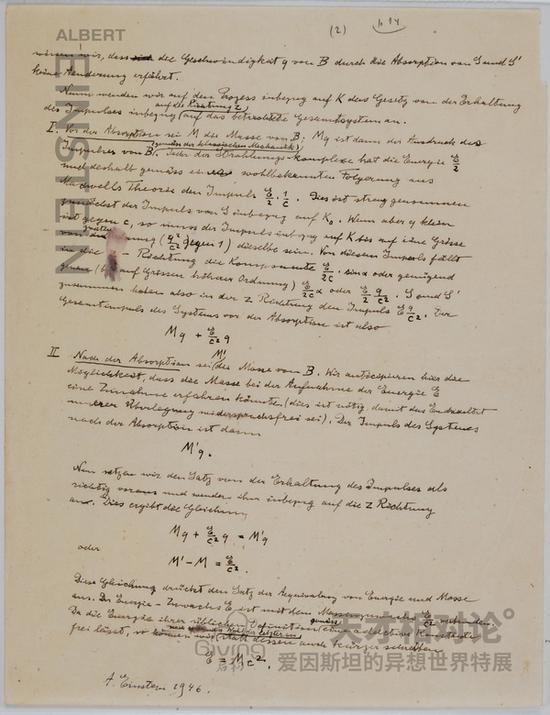 (2)
ALBERT
EINSTEIN
wissen wir, dass die Geschwindigkeit q von B durch die Absorption von S und S'
keine Aenderung erfährt.
Nun wenden wir auf den Prozess inbezug auf K das Gesetz von der Erhaltung
auf die Richtung z
des Impulses inbezug (auf das betrachtete Gesamtsystem an.
I. Vor der Absorption sei M die Masse von B; Mq ist dann der Ausdruck des
(gemäss der klassischen Mechanik)
Impulses von B. Jeder der Strahlungskomplexe hat die Energie E/2
und deshalb gemäss einer wohlbekannten Folgerung aus
Maxwells Theorie den Impuls E/2 · 1/c. Dies ist streng genommen
zunächst der Impuls von S inbezug auf K₀. Wenn aber q klein
ist gegen c, so muss der Impuls inbezug auf K bis auf eine Grösse
von (q²/c² gegen 1) dieselbe sein. Von diesem Impuls fällt
in die Richtung die Komponente E/2c sin α oder genügend
genau (bis auf Grössen höherer Ordnung) E/2c α oder E/2 q/c². S und S'
zusammen haben also in der z Richtung den Impuls E q/c². Der
Gesamtimpuls des Systems vor der Absorption ist also
Mq + E/c² q
II. Nach der Absorption sei M' die Masse von B. Wir antizipieren hier die
Möglichkeit, dass die Masse bei der Aufnahme der Energie E
eine Zunahme erfahren könnte (dies ist nötig, damit das Endresultat
unserer Überlegung widerspruchsfrei sei). Der Impuls des Systems
nach der Absorption ist dann
M'q.
Nun setzen wir den Satz von der Erhaltung des Impulses als
richtig voraus und wenden ihn inbezug auf die z Richtung
an. Dies ergibt die Gleichung
Mq + E/c² q = M'q
oder
M' − M = E/c².
Diese Gleichung drückt den Satz der Aequivalenz von Energie und Masse
aus. Der Energie-Zuwachs E ist mit dem Massenzuwachs E/c² verbunden.
Da die Energie ihrer üblichen Definition gemäss eine additive Konstante
frei lässt, so können wir statt dessen auch kürzer schreiben
E = Mc².
A. Einstein 1946.
天才相对论
爱因斯坦的异想世界特展